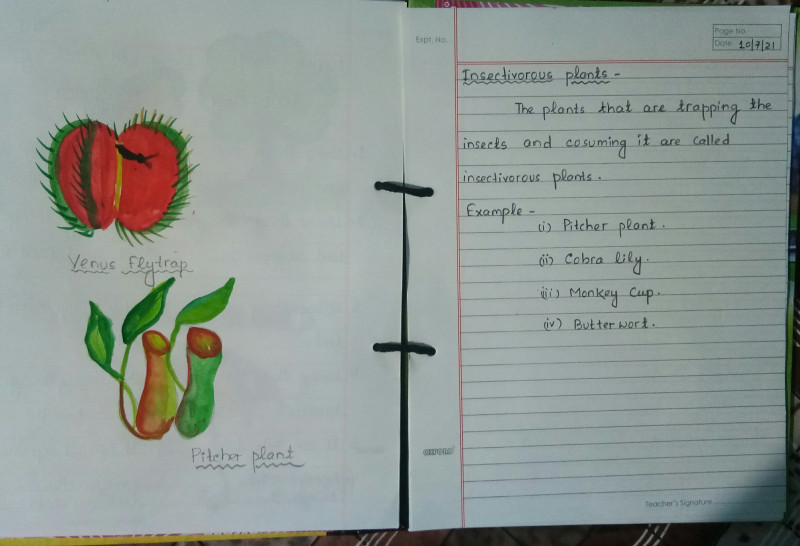 Venus flytrap
Pitcher plant
Expt. No.
Page No.
Date: 10/7/21
Insectivorous plants -
The plants that are trapping the
insects and cosuming it are called
insectivorous plants.
Example -
(i) Pitcher plant.
(ii) Cobra lily.
(iii) Monkey Cup.
(iv) Butter wort.
OXFORD
Teacher's Signature